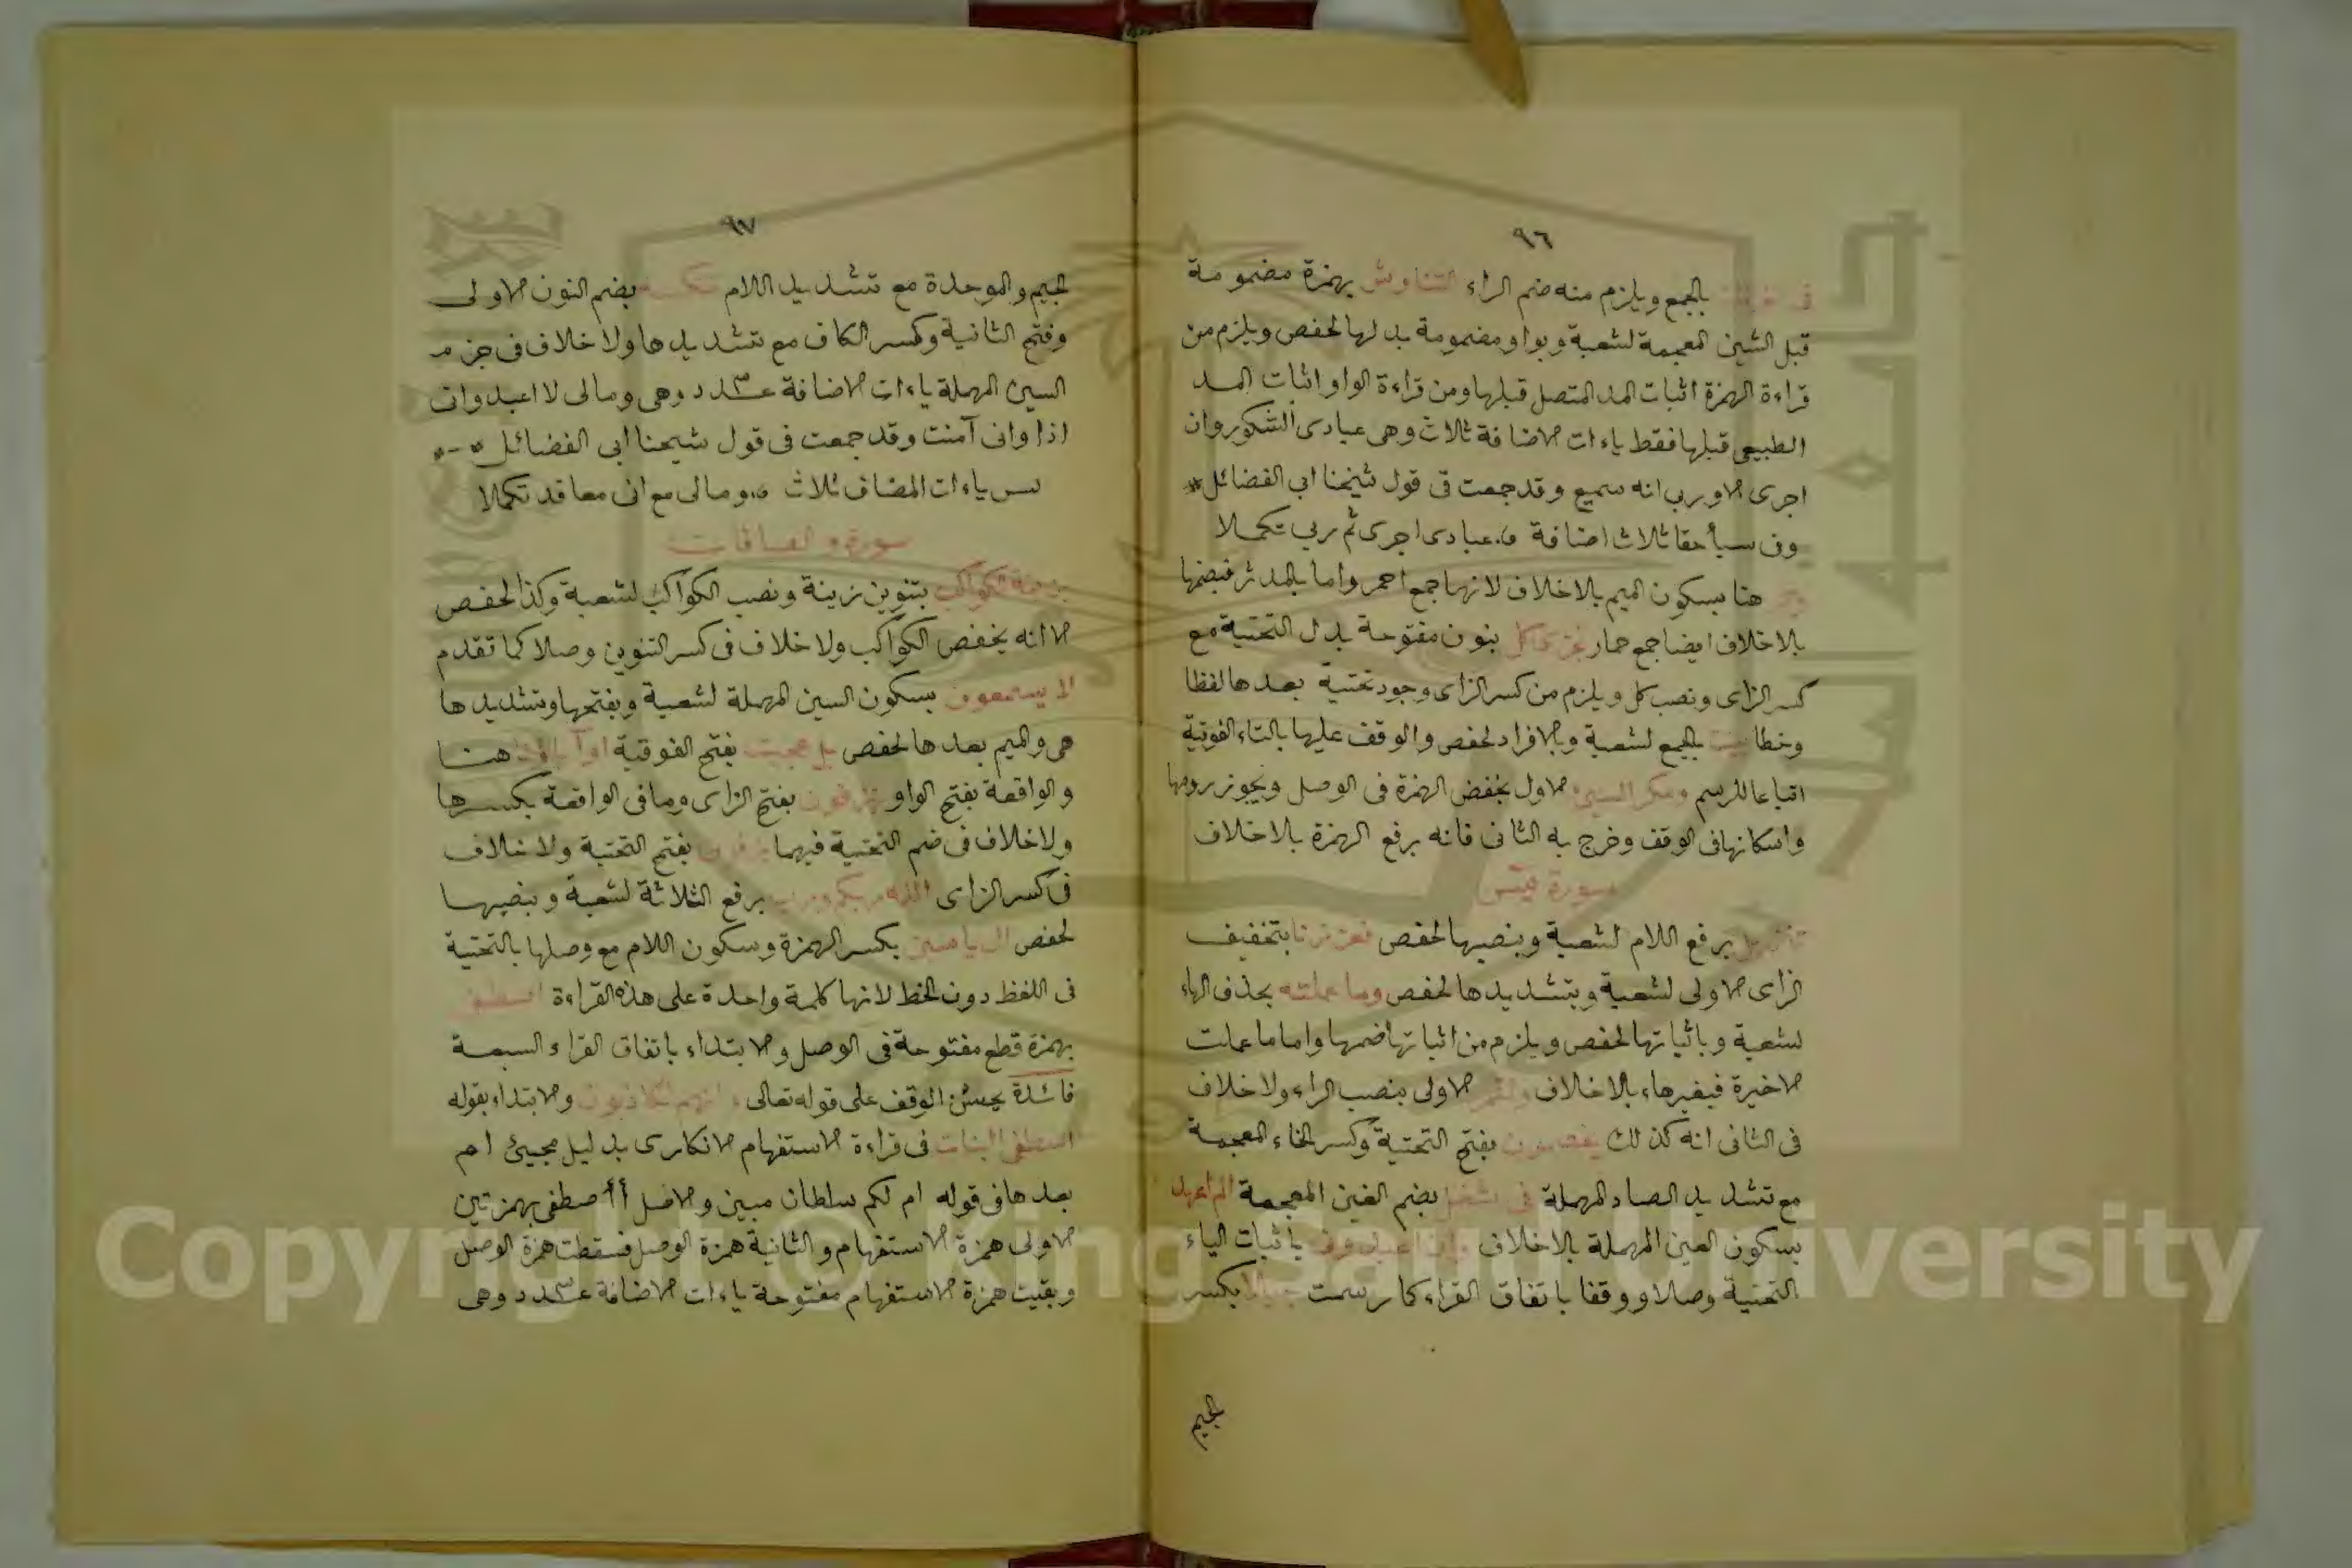 ٩٦
بالجمع ويلزم منه ضم الراء التناوش بهمزة مضمومة
قبل الشين المعجمة لشعبة وبواو مضمومة بدلها لحفص ويلزم من
قراءة الهمزة اثبات المد المتصل قبلها ومن قراءة الواو اثبات المد
الطبيعي قبلها فقط ياءات الاضافة ثلاث وهى عبادى الشكور وان
اجرى الا وربى انه سميع وقد جمعت فى قول شيخنا ابى الفضائل
وفى سبأ حقا ثلاث اضافة عبادى اجرى ثم ربى تكملا
هنا بسكون الميم بلا خلاف لانها جمع احمر واما بالمدثر فبضمها
بلا خلاف ايضا جمع حمار نجزى كل بنون مفتوحة بدل التحتية مع
كسر الزاى ونصب كل ويلزم من كسر الزاى وجود تحتية بعدها لفظا
وخطا بينت بالجمع لشعبة وبالافراد لحفص والوقف عليها بالتاء الفوقية
اتباعا للرسم ومكر السيئ الاول بخفض الهمزة فى الوصل ويجوز رومها
واسكانها فى الوقف وخرج به الثانى فانه برفع الهمزة بلا خلاف
سورة يس
تنزيل برفع اللام لشعبة وبنصبها لحفص فعززنا بتخفيف
الزاى الاولى لشعبة وبتشديدها لحفص وما عملته بحذف الهاء
لشعبة وباثباتها لحفص ويلزم من اثباتها ضمها واما ما عملت
الاخيرة فبغيرهاء بلا خلاف والقمر الاولى بنصب الراء ولا خلاف
فى الثانى انه كذلك يخصمون بفتح التحتية وكسر الخاء المعجمة
مع تشديد الصاد المهملة فى شغل بضم الغين المعجمة الم اعهد
بسكون العين المهملة بلا خلاف وان اعبدونى باثبات الياء
التحتية وصلا ووقفا باتفاق القراء كما رسمت جبلا بكسر
الجيم
٩٧
الجيم والموحدة مع تشديد اللام ننكسه بضم النون الاولى
وفتح الثانية وكسر الكاف مع تشديدها ولا خلاف فى جزم
السين المهملة ياءات الاضافة عـ٣ـدد وهى ومالى لا اعبد وانى
اذا وانى آمنت وقد جمعت فى قول شيخنا ابى الفضائل
يس ياءات المضاف ثلاث ومالى مع انى معا قد تكملا
سورة والصافات
بزينة الكواكب بتنوين زينة ونصب الكواكب لشعبة وكذا لحفص
الا انه يخفض الكواكب ولا خلاف فى كسر التنوين وصلا كما تقدم
لا يسمعون بسكون السين المهملة لشعبة وبفتحها وتشديدها
هى والميم بعدها لحفص بل عجبت بفتح الفوقية اوآباؤنا هنا
والواقعة بفتح الواو ينزفون بفتح الزاى وما فى الواقعة بكسرها
ولا خلاف فى ضم التحتية فيهما يزفون بفتح التحتية ولا خلاف
فى كسر الزاى الله ربكم ورب برفع الثلاثة لشعبة وبنصبها
لحفص ال ياسين بكسر الهمزة وسكون اللام مع وصلها بالتحتية
فى اللفظ دون الخط لانها كلمة واحدة على هذه القراءة اصطفى
بهمزة قطع مفتوحة فى الوصل والابتداء باتفاق القراء السبعة
فائدة يحسن الوقف على قوله تعالى وانهم لكاذبون والابتداء بقوله
اصطفى البنات فى قراءة الاستفهام الانكارى بدليل مجيئ ام
بعدها فى قوله ام لكم سلطان مبين والاصل أأصطفى بهمزتين
الاولى همزة الاستفهام والثانية همزة الوصل فسقطت همزة الوصل
وبقيت همزة الاستفهام مفتوحة ياءات الاضافة عـ٣ـدد وهى
Copyright © King Saud University